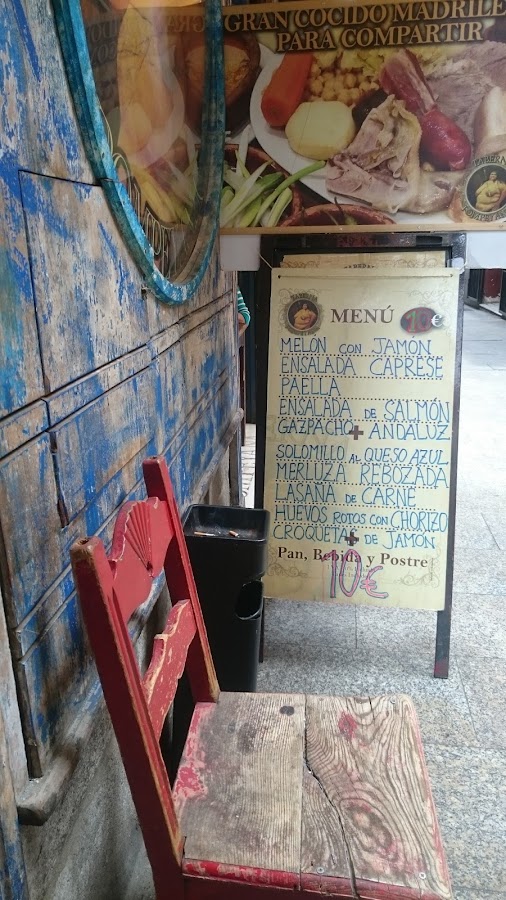 GRAN COCIDO MADRILE
PARA COMPARTIR
MENÚ 10€
MELON CON JAMÓN
ENSALADA CAPRESE
PAELLA
ENSALADA DE SALMÓN
GAZPACHO + ANDALUZ
SOLOMILLO AL QUESO AZUL
MERLUZA REBOZADA
LASAÑA DE CARNE
HUEVOS ROTOS CON CHORIZO
CROQUETAS DE JAMÓN
+
Pan, Bebida y Postre
10€